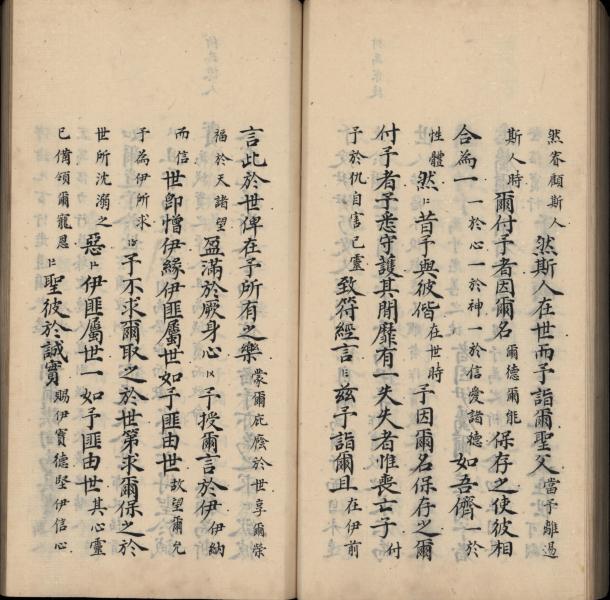 然眷顧斯人然斯人在世而予詣爾聖父當予離過
斯人時爾付予者因爾名爾德爾能保存之使彼相
合為一一於心一於神一於信愛諸德如吾儕一於
性體然昔予與彼偕在世時予因爾名保存之爾
付予者予悉守護其間靡有一失失者惟喪亡子付
予於仇自害己靈致符經言茲予詣爾且在伊前
言此於世俾在予所有之樂蒙爾庇廕於世享爾榮
福於天諸望盈滿於厥身心予授爾言於伊伊納
而信世即憎伊緣伊匪屬世如予匪由世故望爾允
予為伊所求予不求爾取之於世第求爾保之於
世所沈溺之惡伊匪屬世一如予匪由世其心靈
已備領爾寵恩聖彼於誠實賜伊寶德堅伊信心